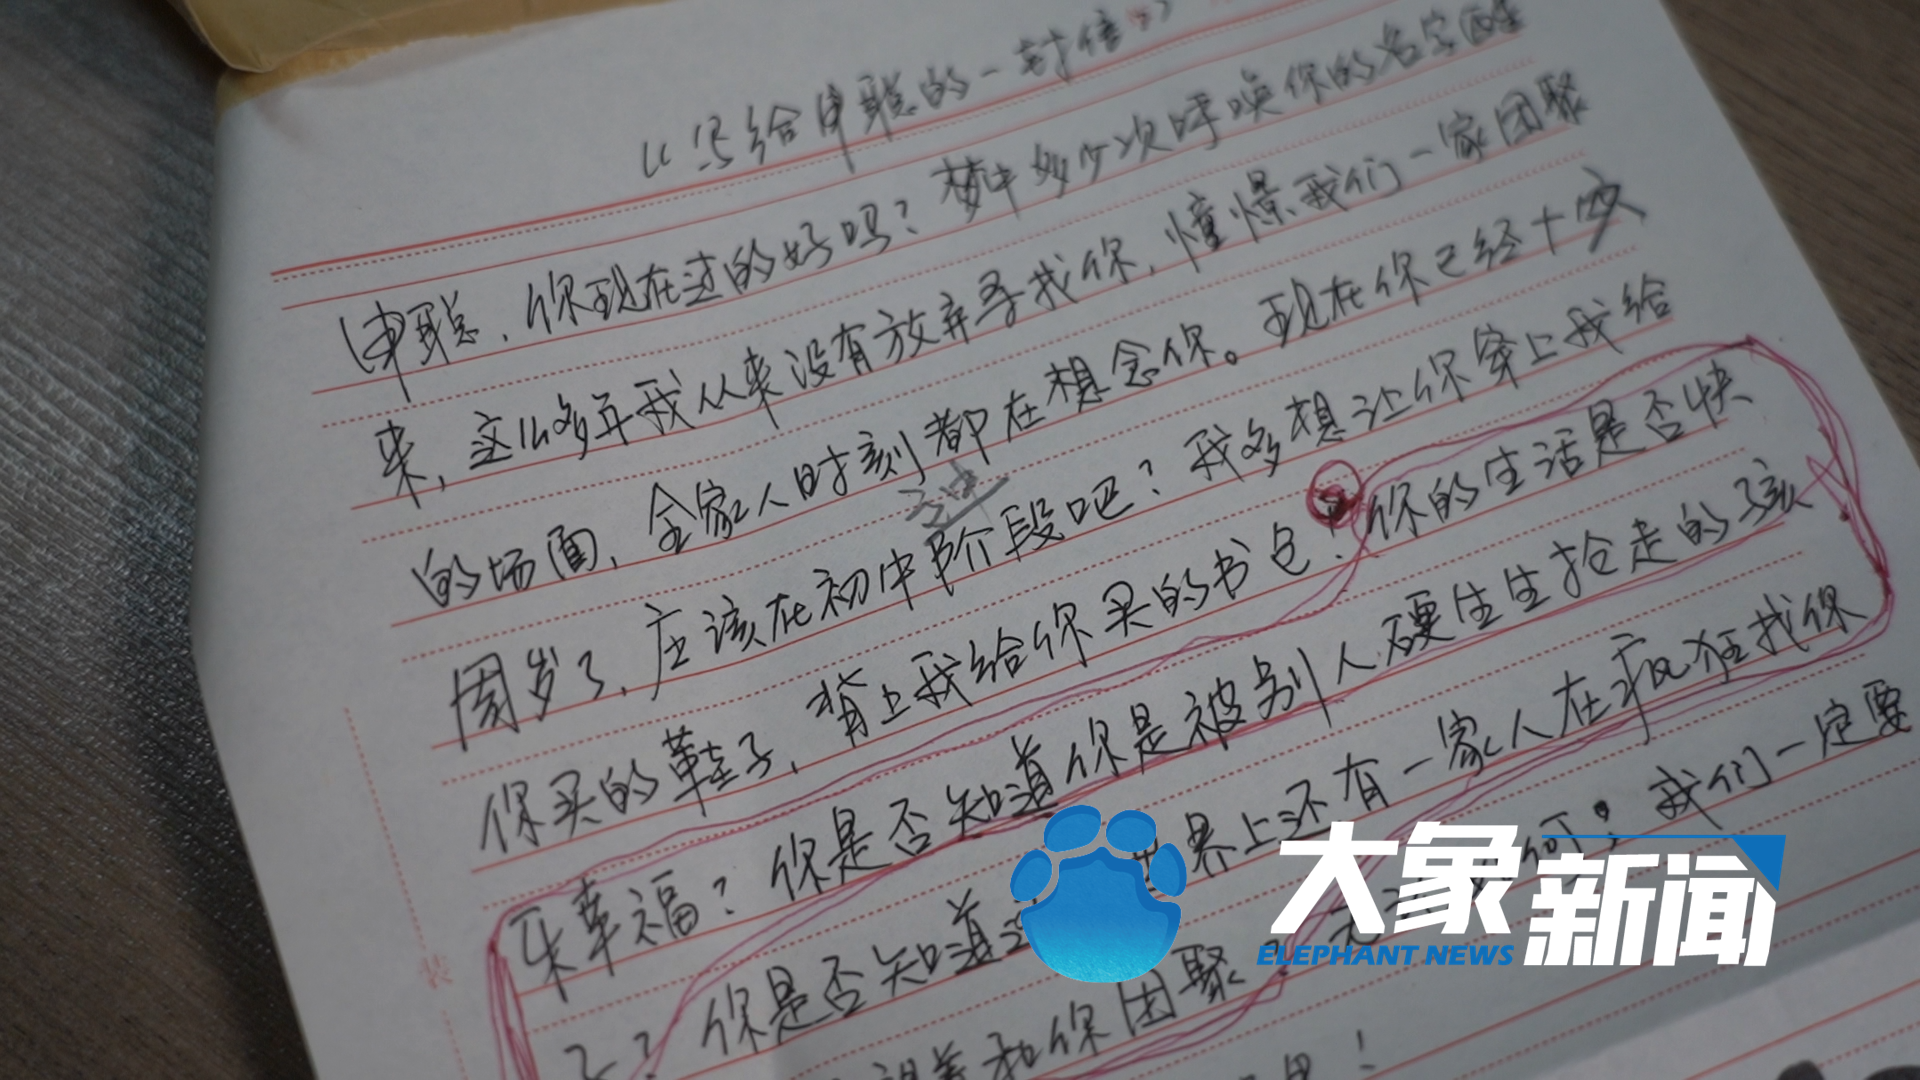 《写给申聪的一封信》
申聪，你现在过的好吗？梦中多少次呼唤你的名字醒
来，这么多年我从来没有放弃寻找你，憧憬我们一家团聚
的场面，全家人时刻都在想念你。现在你已经十四
周岁了，应该在初中阶段吧？我多想让你穿上我给
你买的鞋子，背上我给你买的书包！你的生活是否快
乐幸福？你是否知道你是被别人硬生生抢走的孩
子？你是否知道 界上还有一家人在疯狂找你
和你团聚 何，我们一定要
大象新闻
ELEPHANT NEWS